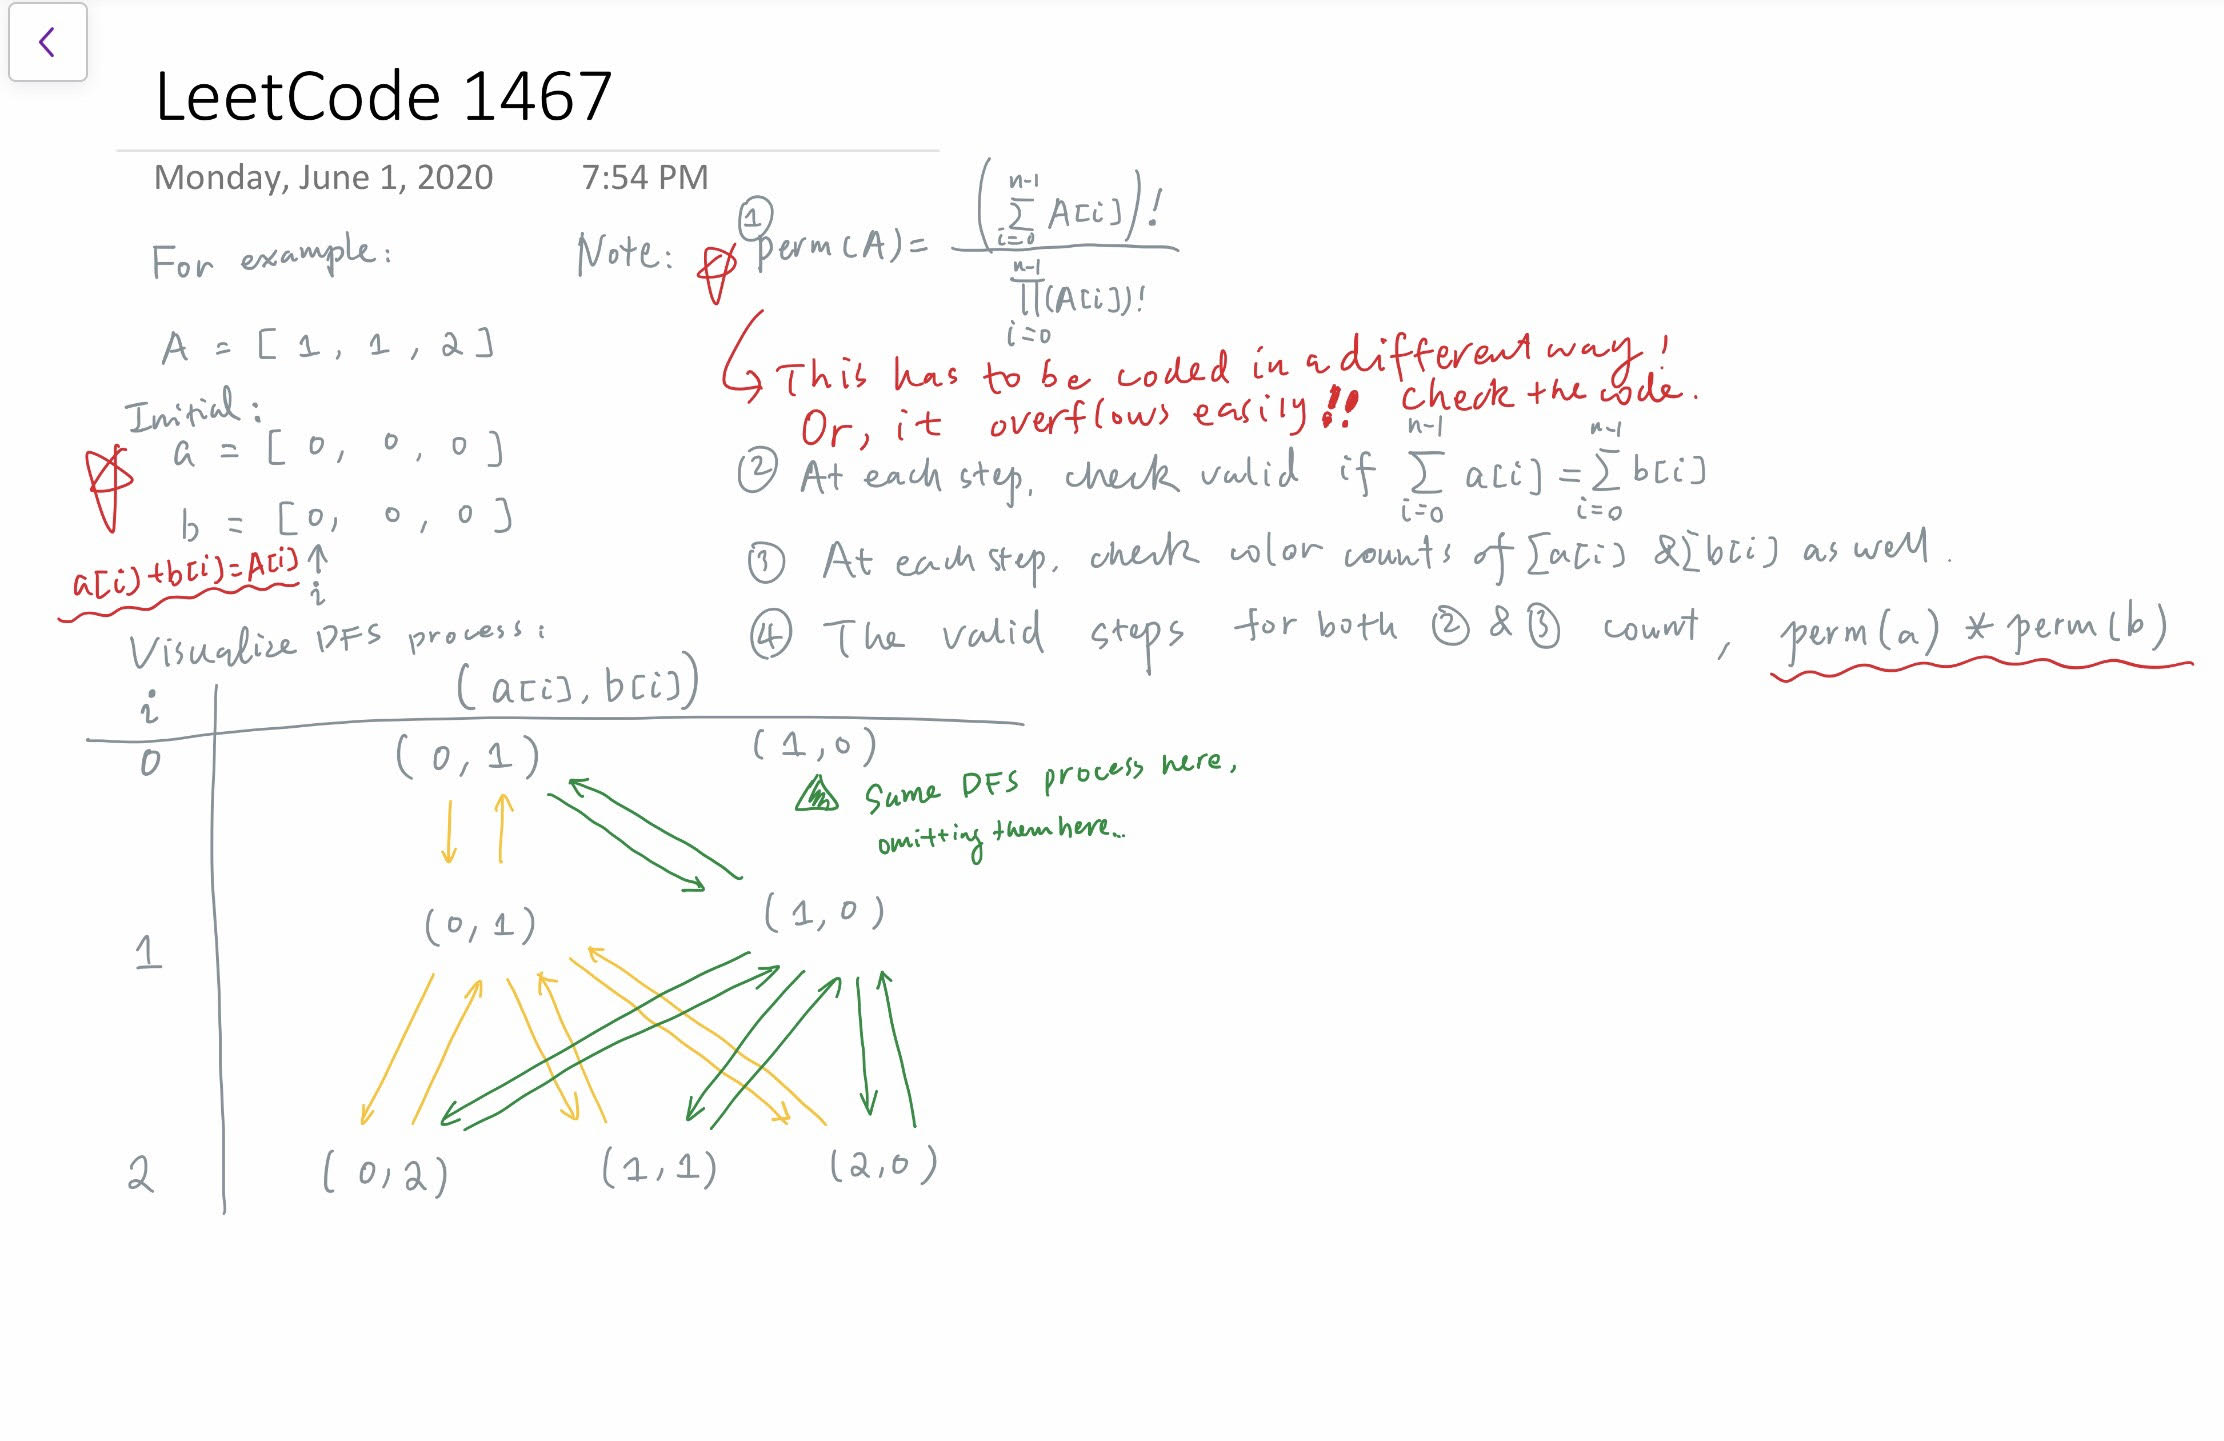 LeetCode 1467
Monday, June 1, 2020 7:54 PM
For example:
A = [ 1, 1, 2 ]
Initial:
a = [ 0, 0, 0 ]
b = [ 0, 0, 0 ]
a[i]+b[i]=A[i] ↑
i
Note: ① perm(A) = (∑_{i=0}^{n-1} A[i])! / ∏_{i=0}^{n-1} (A[i])!
↳ This has to be coded in a different way!
Or, it overflows easily!! Check the code.
② At each step, check valid if ∑_{i=0}^{n-1} a[i] = ∑_{i=0}^{n-1} b[i]
③ At each step, check color counts of ∑a[i] & ∑b[i] as well.
④ The valid steps for both ② & ③ count, perm(a) * perm(b)
Visualize DFS process:
i (a[i], b[i])
0 (0, 1) (1, 0)
Same DFS process here,
omitting them here...
1 (0, 1) (1, 0)
2 (0, 2) (1, 1) (2, 0)